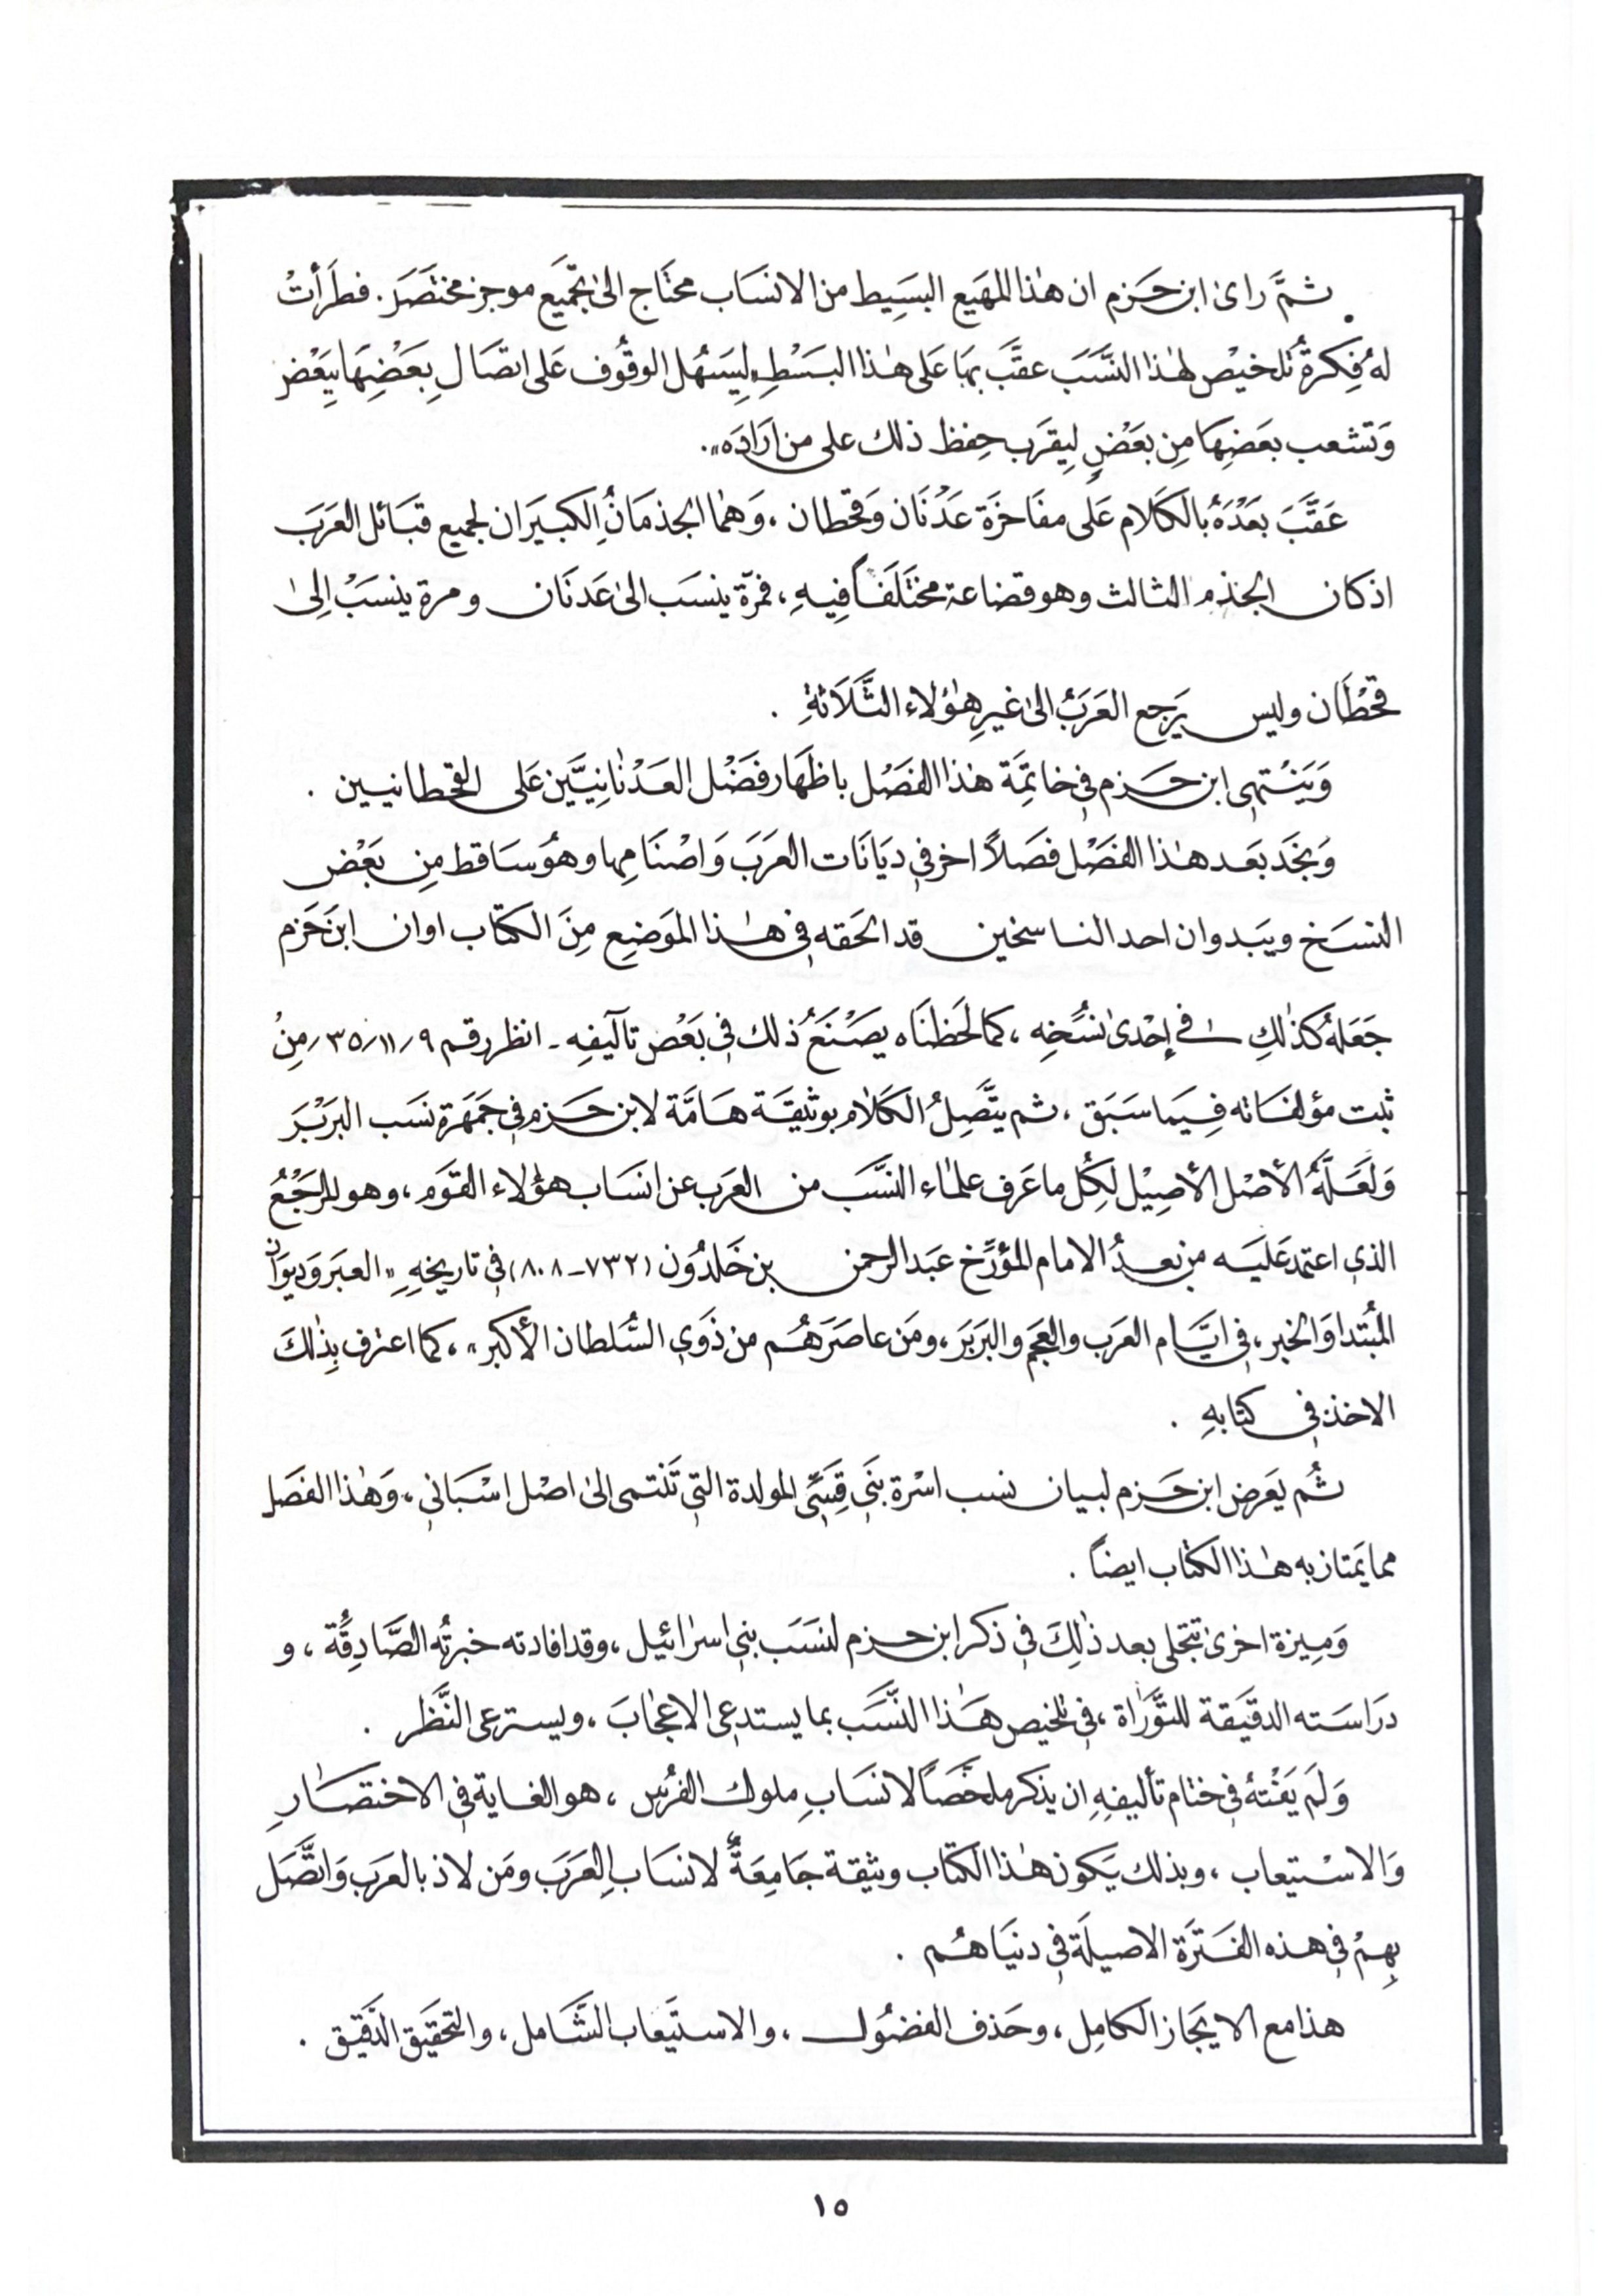 ثمَّ رای ابن حَزم ان هٰذا المهَيع البسَيِط من الانسَاب محتَاج الیٰ تجّميَع موجز مختصَرَ. فطَرَأتْ
لهُ فِكرةُ تلخيْص لهٰذا النَّسَبَ عقَّبَ بهَا عَلی هٰذا البَسْطِ "ليِسَهُل الوقُوف عَلی اتصَالِ بِعَضِهَا بِبَعْض
وَتشعب بعَضِهَا مِن بعَضٍ ليِقرَب حِفظ ذلك علی من ارَادَه".
عَقَّبَ بعَدْهُ بالكَلام عَلی مفَاخرَة عَدْنَان وَقحطان ، وَهمٰا الجذمَانِ الكبيَران لجميع قبَائل العَربَ
اذ كان الجذم الثالث وهو قضاعة مختَلَفاً فِيهِ ، فمَرّة ينسَب الیٰ عَدنَان ومرة ينسَبُ اِلیٰ
قحْطَان وليس يَرجع العَربُ الیٰ غيرِ هٰؤلاء الثَّلاَثةِ .
وَيَنتْهی ابن حَزم فی خاتمِةَ هٰذا الفصَل باظهَار فضَْل العَدْنٰانِيَّين عَلی القحطانيين .
وَنجَد بعَد هٰذا الفصَْل فصَلاً اخر في ديَانَات العَربَ وَاصْنَامِها وهُوَ سَاقط مِن بَعْض
النسَخ ويبَدو ان احد الناسخين قد الحَقه فی هٰذا الموَضِع مِنَ الكتَاب او ان ابنَ حَزم
جَعَلهُ كذٰلِكِ في إحْدیٰ نسُخِه ، كما لَحظنَاه يصَنْعَُ ذلك فی بَعْض تآليفِه - انظر رقم ٩٫ ١١٫ ٣٥٫ مِنْ
ثبت مؤلفَاته فِيمَا سَبَق ، ثم يتَّصِلُ الكَلاٰم بوَثيقَة هَامَّة لابن حَزم فی جمَهَرة نسَب البَربْرَ
وَلعَلَّهُ الأصْل الأصِيْل لِكُل ما عَرف علمٰاء النَّسَبَ من العَرب عن انسَاب هؤلاء القَوم ، وهو المرَجْعُ
الذي اعتمد عَليَه من بعدُ الامام المؤرَّخ عبَد الرحمن بن خَلدُون (٧٣٢-٨٠٨) فی تاريخِهِ "العبَر وَديوَان
المبُتدا وَالخبر ، فی ايَّام العَرب والعَجم والبَربَرَ ، ومَن عاصَرَهُم من ذَوي السُّلطان الأكبر" ، كما اعترف بِذٰلكَ
الاخذ فی كتابهِ .
ثُم يعَرض ابن حَزم لبيان نسب اسْرة بنَي قِسَيّ المولدة التي تَنتمی الیٰ اصْل اسْبَاني ، وَهٰذا الفصَل
مما يمَتاز به هٰذا الكتٰاب ايضاً .
وَمِيزة اخریٰ تتجلی بعد ذٰلِكَ فی ذكر ابن حزم لنسَبَ بني اسرائيل ، وقد افادته خبرتُه الصَّادِقَة ، و
درَاسَته الدقيَقة للتوَّرَاة ، فی تلخيص هَٰذا النَّسَب بما يستدعی الاعجابَ ، ويسترعی النَّظَر .
وَلَم يَفْتهُ فی ختٰام تأليفِهِ ان يذكر ملخَّصَاً لانسَابِ ملوك الفرُس ، هو الغاية فی الاختصَٰارِ
وَالاسْتيعاب ، وبذلك يَكون هٰذا الكتٰاب وثيقة جَامِعَةٌ لانسَابِ العَربَ ومَن لاذ بالعَربَ وَاتصَّل
بِهِمْ فی هذه الفَترَة الاصيلَة فی دنيَاهُم .
هذا مع الايجَاز الكامِل ، وحَذف الفضُول ، والاستيَعاب الشَّامل ، والتحقيَق الدَّقيق .
١٥